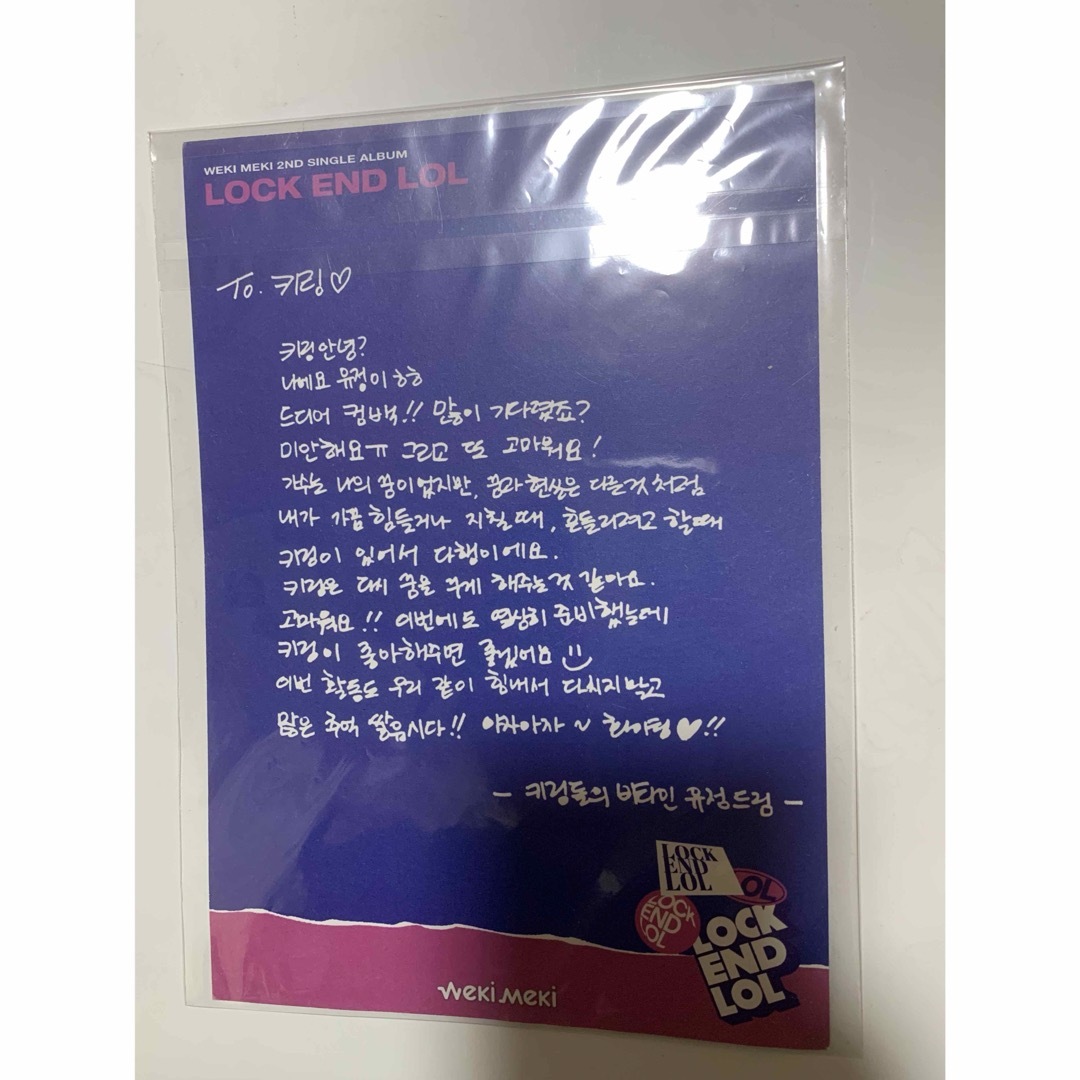 WEKI MEKI 2ND SINGLE ALBUM
LOCK END LOL
To. 키링♡
키링안녕?
나예요 유정이 ㅎㅎ
드디어 컴백!! 많이 기다렸죠?
미안해요ㅠ 그리고 또 고마워요!
가수는 나의 꿈이었지만, 꿈과 현실은 다른것처럼
내가 가끔 힘들거나 지칠때, 흔들리려고 할때
키링이 있어서 다행이에요.
키링은 다시 꿈을 꾸게 해주는것 같아요.
고마워요!! 이번에도 열심히 준비했는데
키링이 좋아해주면 좋겠어요
이번 활동도 우리 같이 힘내서 다치지말고
많은 추억 쌓읍시다!! 아자아자 ~ 화이팅♥!!
- 키링들의 비타민 유정드림 -
LOCK
END
LOL
OL
LOCK
END
LOL
LOCK
END
LOL
Weki Meki